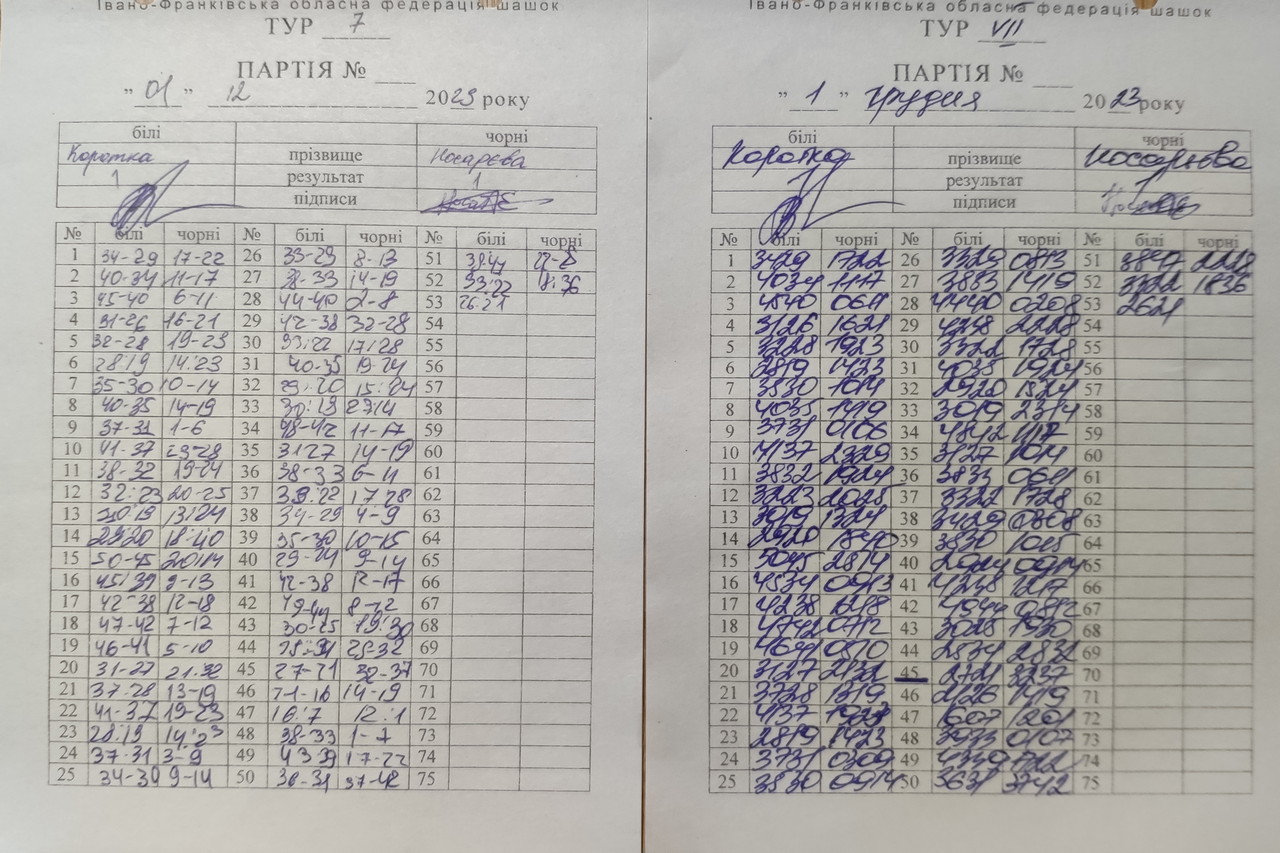 Івано-Франківська обласна федерація шашок
ТУР 7
ПАРТІЯ № ___
"01" 12 2023 року
білі чорні
Коротка прізвище Косарєва
1 результат 1
підписи
№ білі чорні № білі чорні № білі чорні
1 34-29 17-22 26 33-29 8-13 51
2 40-34 11-17 27 38-33 14-19 52 33:22 18:36
3 45-40 6-11 28 44-40 2-8 53 26-21
4 31-26 16-21 29 42-38 54
5 32-28 19-23 30 33:22 17:28 55
6 28:19 14:23 31 40-35 19-24 56
7 35-30 10-14 32 29:20 15:24 57
8 40-35 14-19 33 30:19 23:14 58
9 37-31 1-6 34 48-42 11-17 59
10 41-37 23-28 35 31-27 14-19 60
11 38-32 19-24 36 38-33 6-11 61
12 32:23 20-25 37 33:22 17:28 62
13 30:19 13:24 38 34-29 4-9 63
14 29:20 18:40 39 35-30 10-15 64
15 50-45 20:14 40 29-24 9-14 65
16 9-13 41 42-38 12-17 66
17 42-38 12-18 42 49-44 8-12 67
18 47-42 7-12 43 30-25 19:30 68
19 46-41 5-10 44 28-32 69
20 31-27 21:32 45 27-21 32-37 70
21 37:28 13-19 46 14-19 71
22 41-37 19-23 47 16:7 12:1 72
23 28:19 14:23 48 38-33 1-7 73
24 37-31 3-9 49 17-22 74
25 9-14 50 36-31 37-42 75
Івано-Франківська обласна федерація шашок
ТУР VII
ПАРТІЯ № ___
"1" грудня 2023 року
білі чорні
Коротка прізвище
1 результат 1
підписи
№ білі чорні № білі чорні № білі чорні
1 3429 1722 26 3329 0813 51 2228
2 4034 1117 27 3833 1419 52 3322 1836
3 4540 0611 28 4440 0208 53 2621
4 3126 1621 29 4238 2228 54
5 3228 1923 30 3322 1728 55
6 2819 1423 31 4035 1924 56
7 3530 1014 32 2920 1524 57
8 4035 1419 33 3019 2314 58
9 3731 0106 34 4842 1117 59
10 4137 35 3127 60
11 3832 1924 36 3833 0611 61
12 3223 2025 37 3322 1728 62
13 3019 1324 38 3429 63
14 2920 1840 39 3530 1015 64
15 5045 40 2924 0914 65
16 4534 0913 41 4238 1217 66
17 4238 1218 42 4944 0812 67
18 4742 0712 43 3025 1930 68
19 4641 0510 44 2834 2832 69
20 3127 2132 45 2721 3237 70
21 3728 1319 46 1419 71
22 4137 1923 47 1607 1201 72
23 2819 1423 48 0107 73
24 3731 0309 49 4339 1722 74
25 0914 50 3631 3742 75